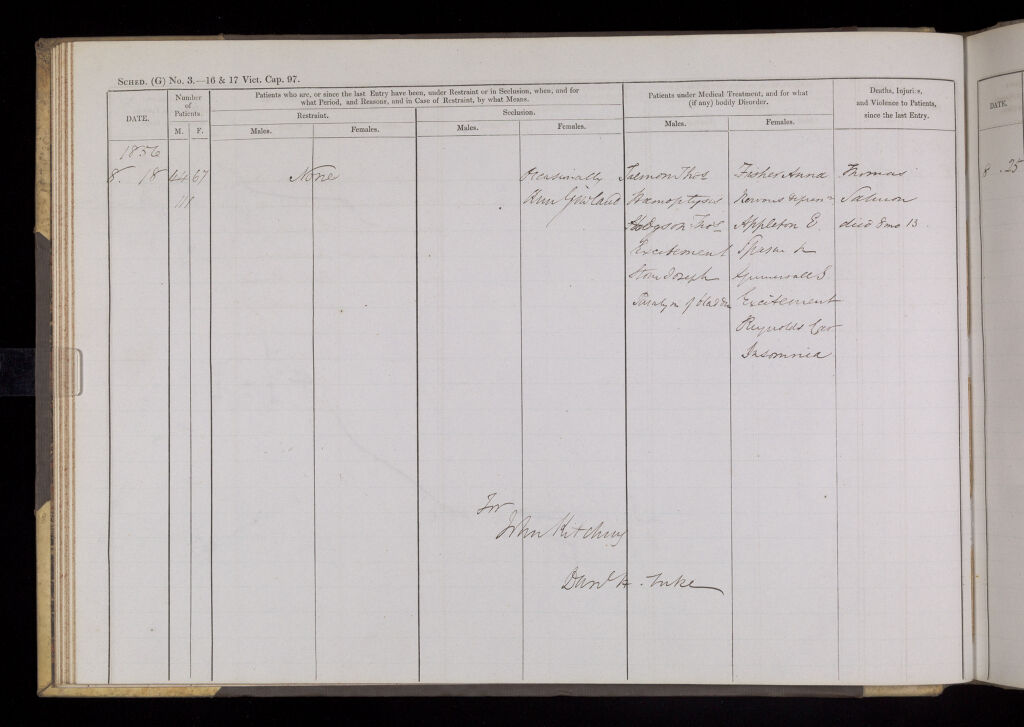 SCHED. (G) No. 3.—16 & 17 Vict. Cap. 97.
DATE.
Number of Patients.
M. F.
Patients who are, or since the last Entry have been, under Restraint or in Seclusion, when, and for
what Period, and Reasons, and in Case of Restraint, by what Means.
Restraint.
Males. Females.
Seclusion.
Males. Females.
Patients under Medical Treatment, and for what
(if any) bodily Disorder.
Males. Females.
Deaths, Injuries,
and Violence to Patients,
since the last Entry.
1856
8. 18
44 67
111
None
Occasionally
Ann
Salmon Thos
Hæmoptysis
Hodgson Thos
Excitement
Joseph
of bladder
Fisher Anna
Nervous
Appleton E.
Excitement
Reynolds
Insomnia
Thomas
Salmon
died 8 mo 13
For
John Kitching
Danl H. Tuke
DATE.
8 . 25